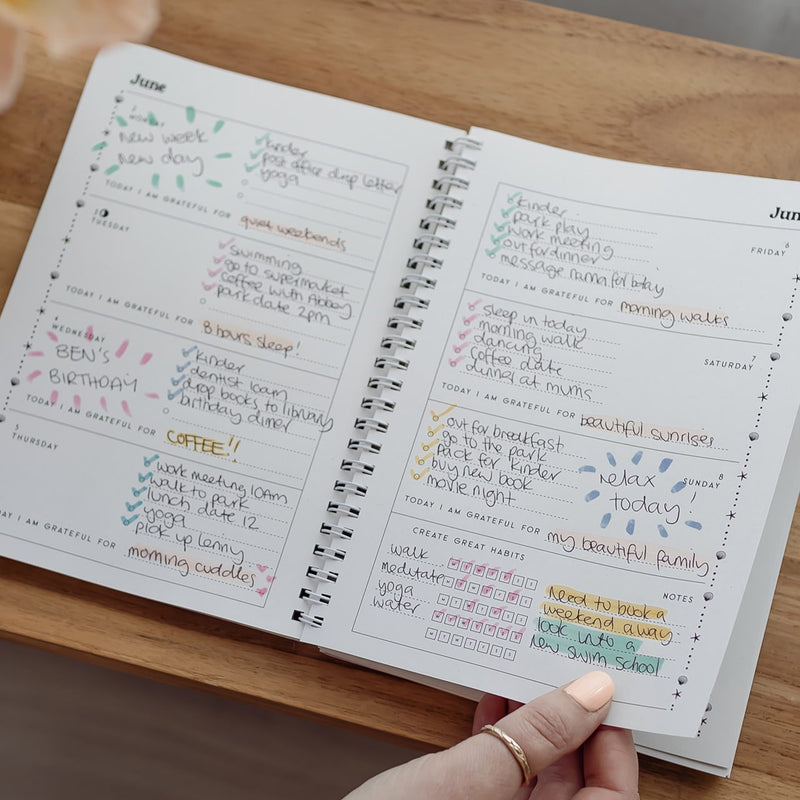 June
MONDAY
new week
new day
kinder
post office drop letter
yoga
TODAY I AM GRATEFUL FOR
quiet weekends
3
TUESDAY
swimming
go to supermarket
coffee with Abbey
park date 2pm
TODAY I AM GRATEFUL FOR
8 hours sleep!
4
WEDNESDAY
BEN'S
BIRTHDAY
kinder
dentist 10am
drop books to library
birthday diner
TODAY I AM GRATEFUL FOR
COFFEE!!
5
THURSDAY
work meeting 10AM
walk to park
lunch date 12
yoga
pick up lenny
DAY I AM GRATEFUL FOR
morning cuddles
Jun
6
FRIDAY
kinder
park play
work meeting
out for dinner
message nanna for bday
TODAY I AM GRATEFUL FOR
morning walks
7
SATURDAY
sleep in today
morning walk
dancing
coffee date
dinner at mums
TODAY I AM GRATEFUL FOR
beautiful sunrises
8
SUNDAY
out for breakfast
go to the park
pack for kinder
buy new book
movie night
relax
today!
TODAY I AM GRATEFUL FOR
my beautiful family
CREATE GREAT HABITS
walk
meditate
yoga
water
NOTES
need to book a
weekend away
look into a
new swim school